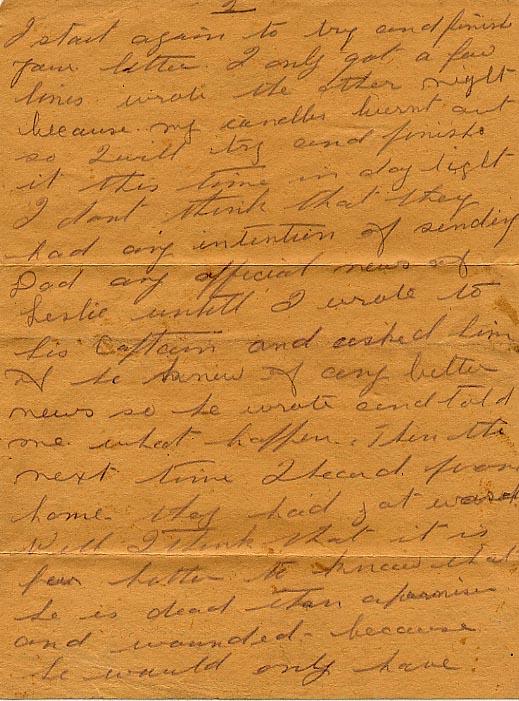 2
I start again to try and finish
your letter. I only got a few
lines wrote the other night
because my candles burnt out
so I will try and finish
it this time in day light
I dont think that they
had any intention of sending
Dad any official news of
Leslie untill I wrote to
his Captain and asked him
if he knew of any better
news so he wrote and told
me what happen. Then the
next time I heard from
home they had got word
Well I think that it is
far better to know that
he is dead than a
and wounded - because
he would only have